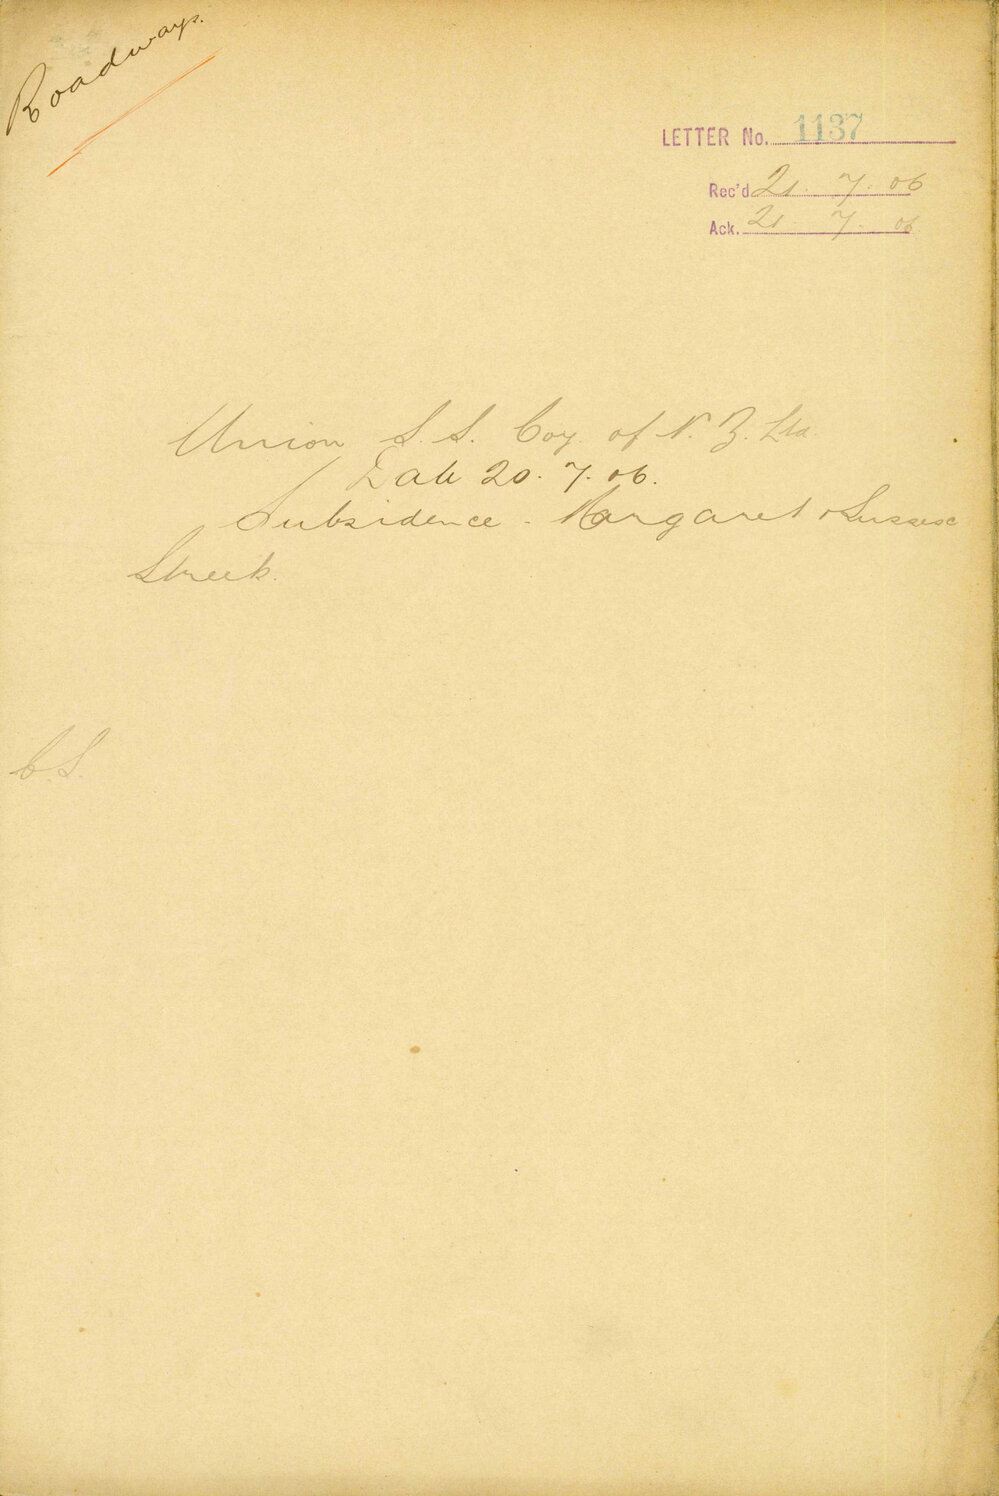 Roadways.
LETTER No. 1137
Rec'd 21. 7. 06
Ack. 21. 7. 06
Union S. S. Coy. of N. Z. Ltd.
Date 20. 7. 06.
Subsidence - Margaret & Sussex
Streets.
C. S.